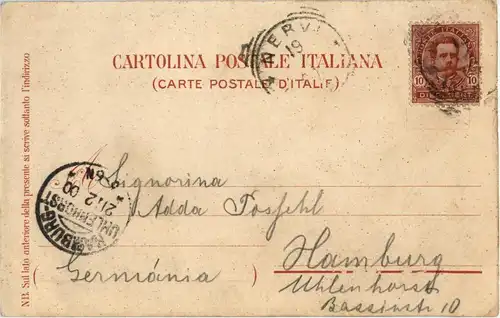 NERVI
19
CARTOLINA POSTALE ITALIANA
(CARTE POSTALE D'ITALIE)
10 10
NB. Sul lato anteriore della presente si scrive soltanto l'indirizzo
HAMBURG
UHLENHORST
21.2 00
6-7N
All Signorina
Adda Possehl
Hamburg
Uhlenhorst
Bassinstr 10
(Germánia)